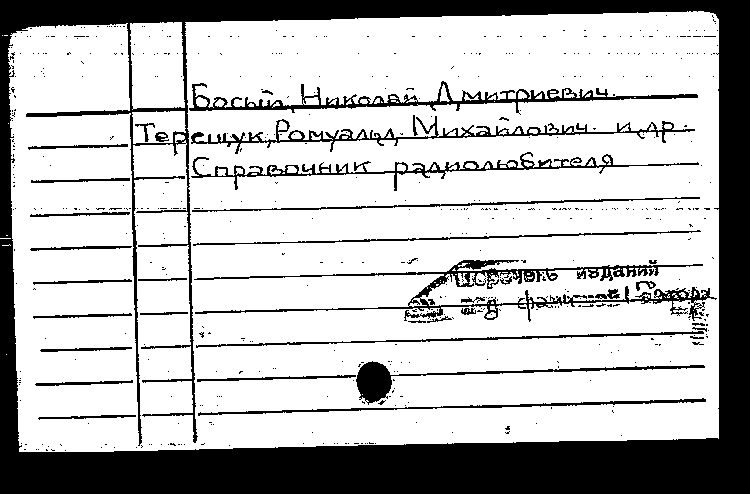 Босый, Николай Дмитриевич.
Терещук, Ромуальд Михайлович. и др.
Справочник радиолюбителя
Перечень изданий